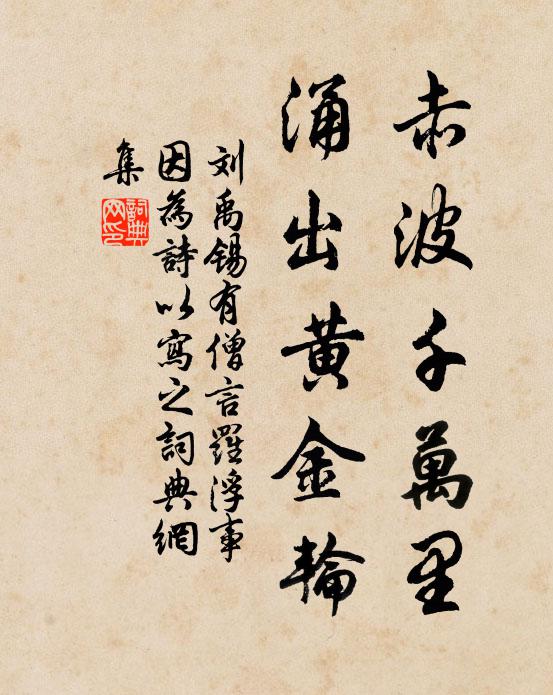 赤波千萬里
涌出黄金輪
刘禹锡有僧言羅浮事
因為詩以寫之詞典網
集
詞典
网印